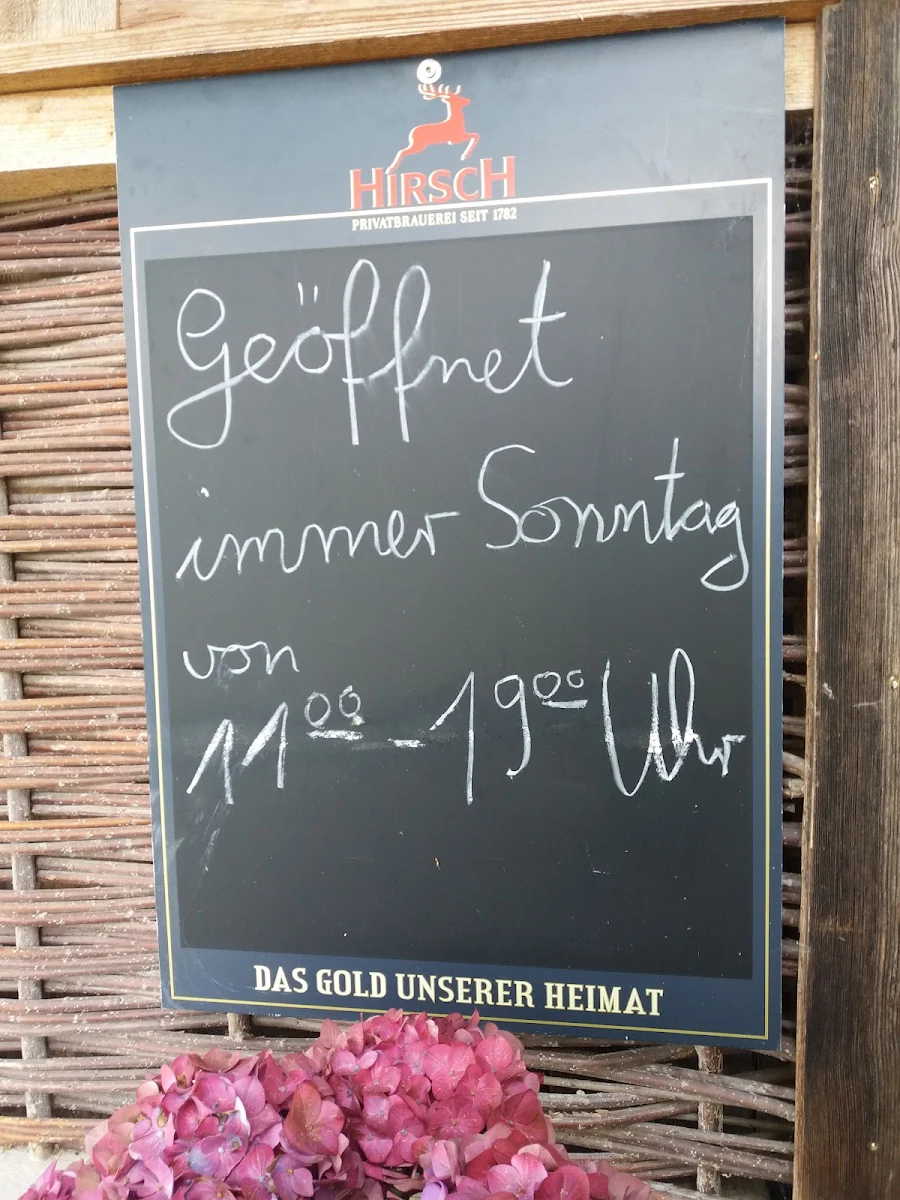 HIRSCH
PRIVATBRAUEREI SEIT 1782
Geöffnet
immer Sonntag
von
11⁰⁰ - 19⁰⁰ Uhr
DAS GOLD UNSERER HEIMAT